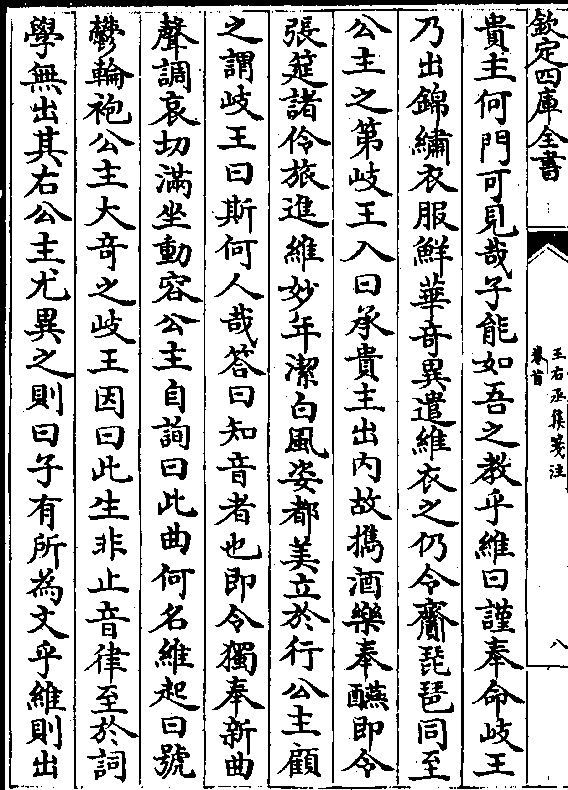 欽定四庫全書
王右丞集箋注
卷首
八
貴主何門可見哉子能如吾之教乎維曰謹奉命岐王
乃出錦繡衣服鮮華奇異遣維衣之仍令齎琵琶同至
公主之第岐王入曰承貴主出內故攜酒樂奉醼即令
張筵諸伶旅進維妙年潔白風姿都美立於行公主顧
之謂岐王曰斯何人哉答曰知音者也即令獨奉新曲
聲調哀切滿坐動容公主自詢曰此曲何名維起曰號
鬱輪袍公主大奇之岐王因曰此生非止音律至於詞
學無出其右公主尤異之則曰子有所為文乎維則出